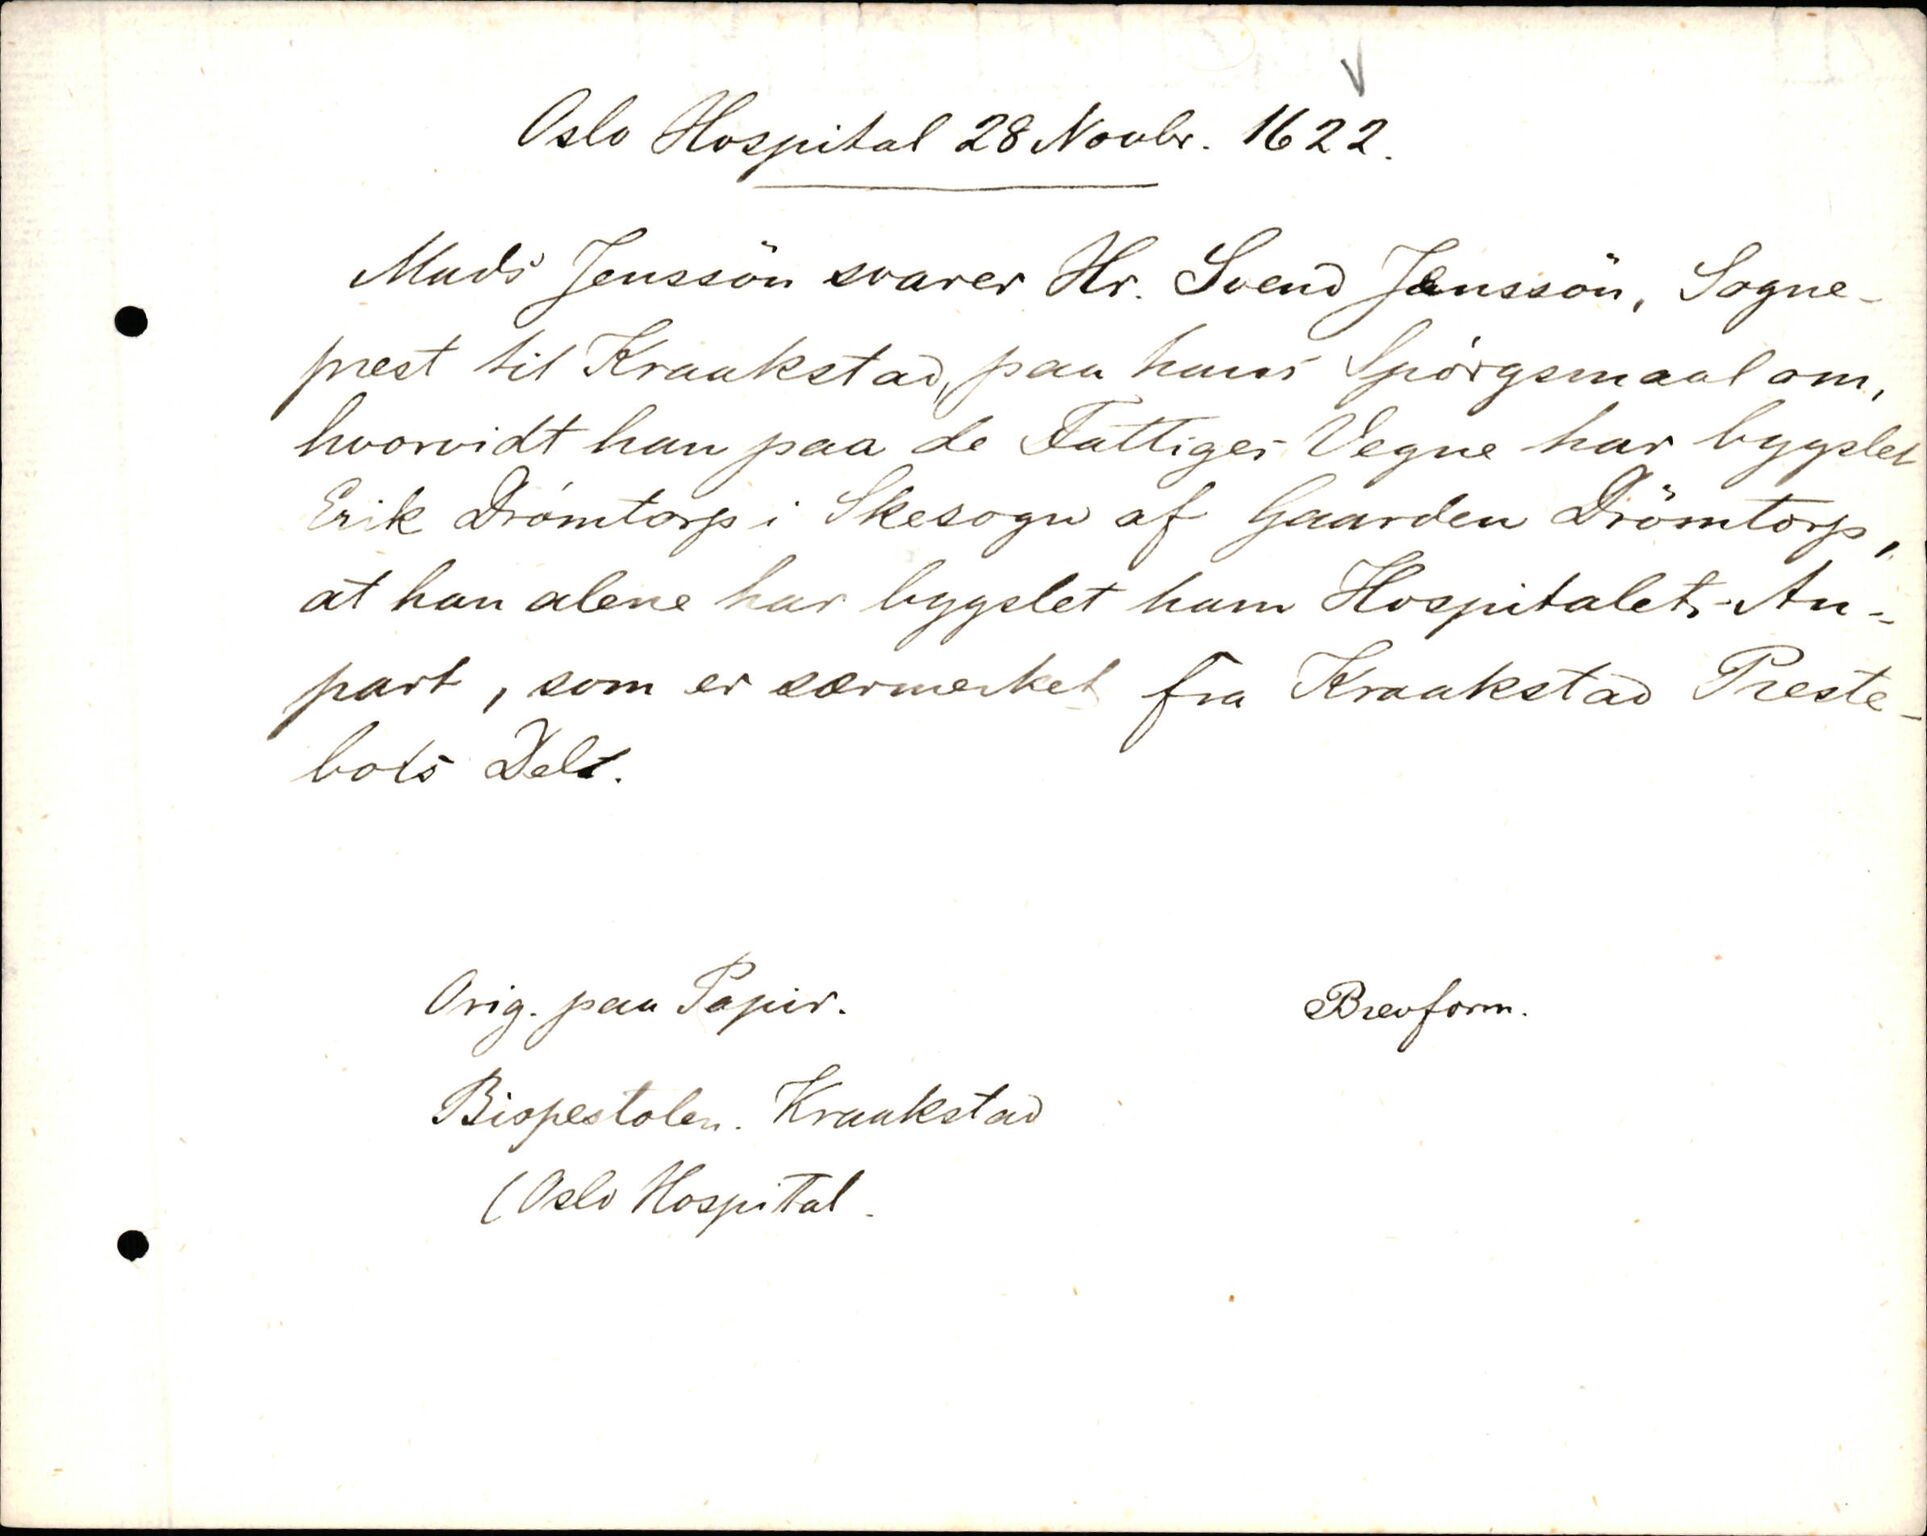 Oslo Hospital 28 Novbr. 1622.
Mads Jenssön svarer Hr. Svend Jenssön, Sogne-
prest til Kraakstad, paa hans Spörgsmaal om,
hvorvidt han paa de Fattiges Vegne har bygslet
Erik Drömtorp i Skesogn af Gaarden Drömtorp,
at han alene har bygslet ham Hospitalets An-
part, som er særmerket fra Kraakstad Preste-
bols Del.
Orig. paa Papir.
Brevform.
Bispestolen. Kraakstad
(Oslo Hospital.